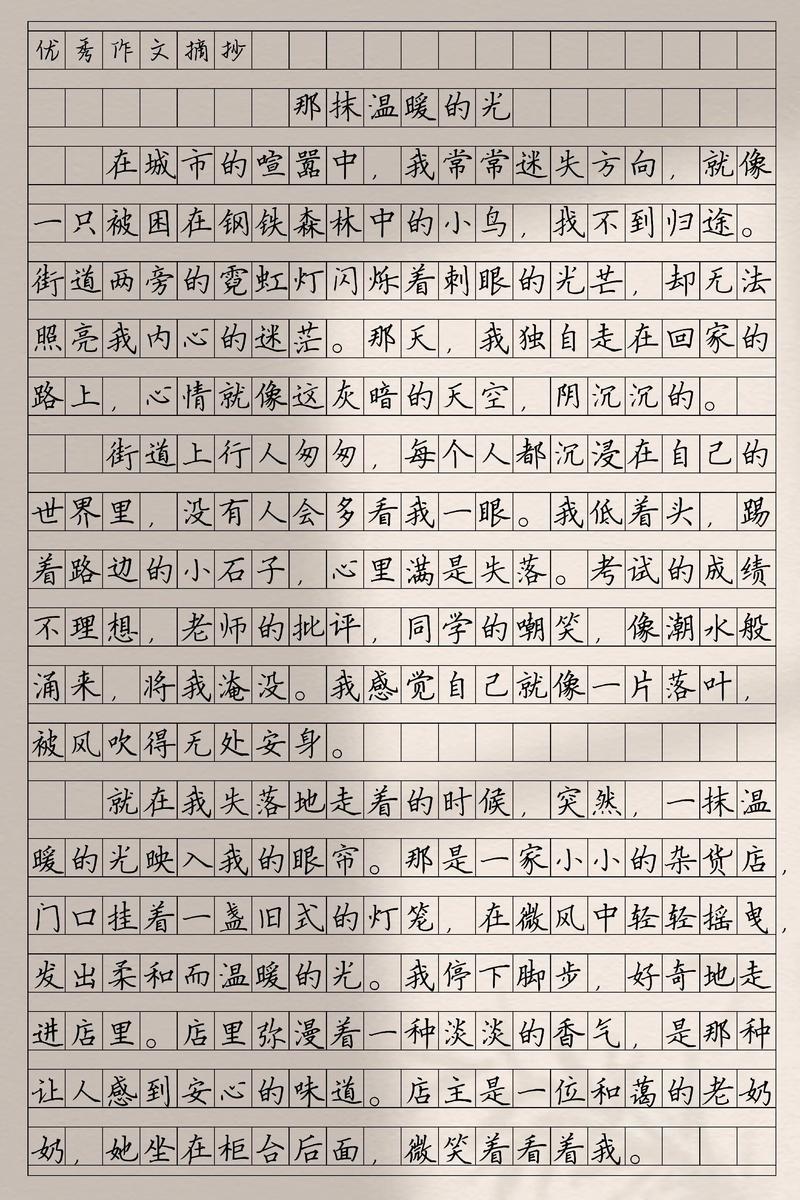 优秀作文摘抄
那抹温暖的光
在城市的喧嚣中，我常常迷失方向，就像
一只被困在钢铁森林中的小鸟，找不到归途。
街道两旁的霓虹灯闪烁着刺眼的光芒，却无法
照亮我内心的迷茫。那天，我独自走在回家的
路上，心情就像这灰暗的天空，阴沉沉的。
街道上行人匆匆，每个人都沉浸在自己的
世界里，没有人会多看我一眼。我低着头，踢
着路边的小石子，心里满是失落。考试的成绩
不理想，老师的批评，同学的嘲笑，像潮水般
涌来，将我淹没。我感觉自己就像一片落叶，
被风吹得无处安身。
就在我失落地走着的时候，突然，一抹温
暖的光映入我的眼帘。那是一家小小的杂货店，
门口挂着一盏旧式的灯笼，在微风中轻轻摇曳，
发出柔和而温暖的光。我停下脚步，好奇地走
进店里。店里弥漫着一种淡淡的香气，是那种
让人感到安心的味道。店主是一位和蔼的老奶
奶，她坐在柜台后面，微笑着看着我。